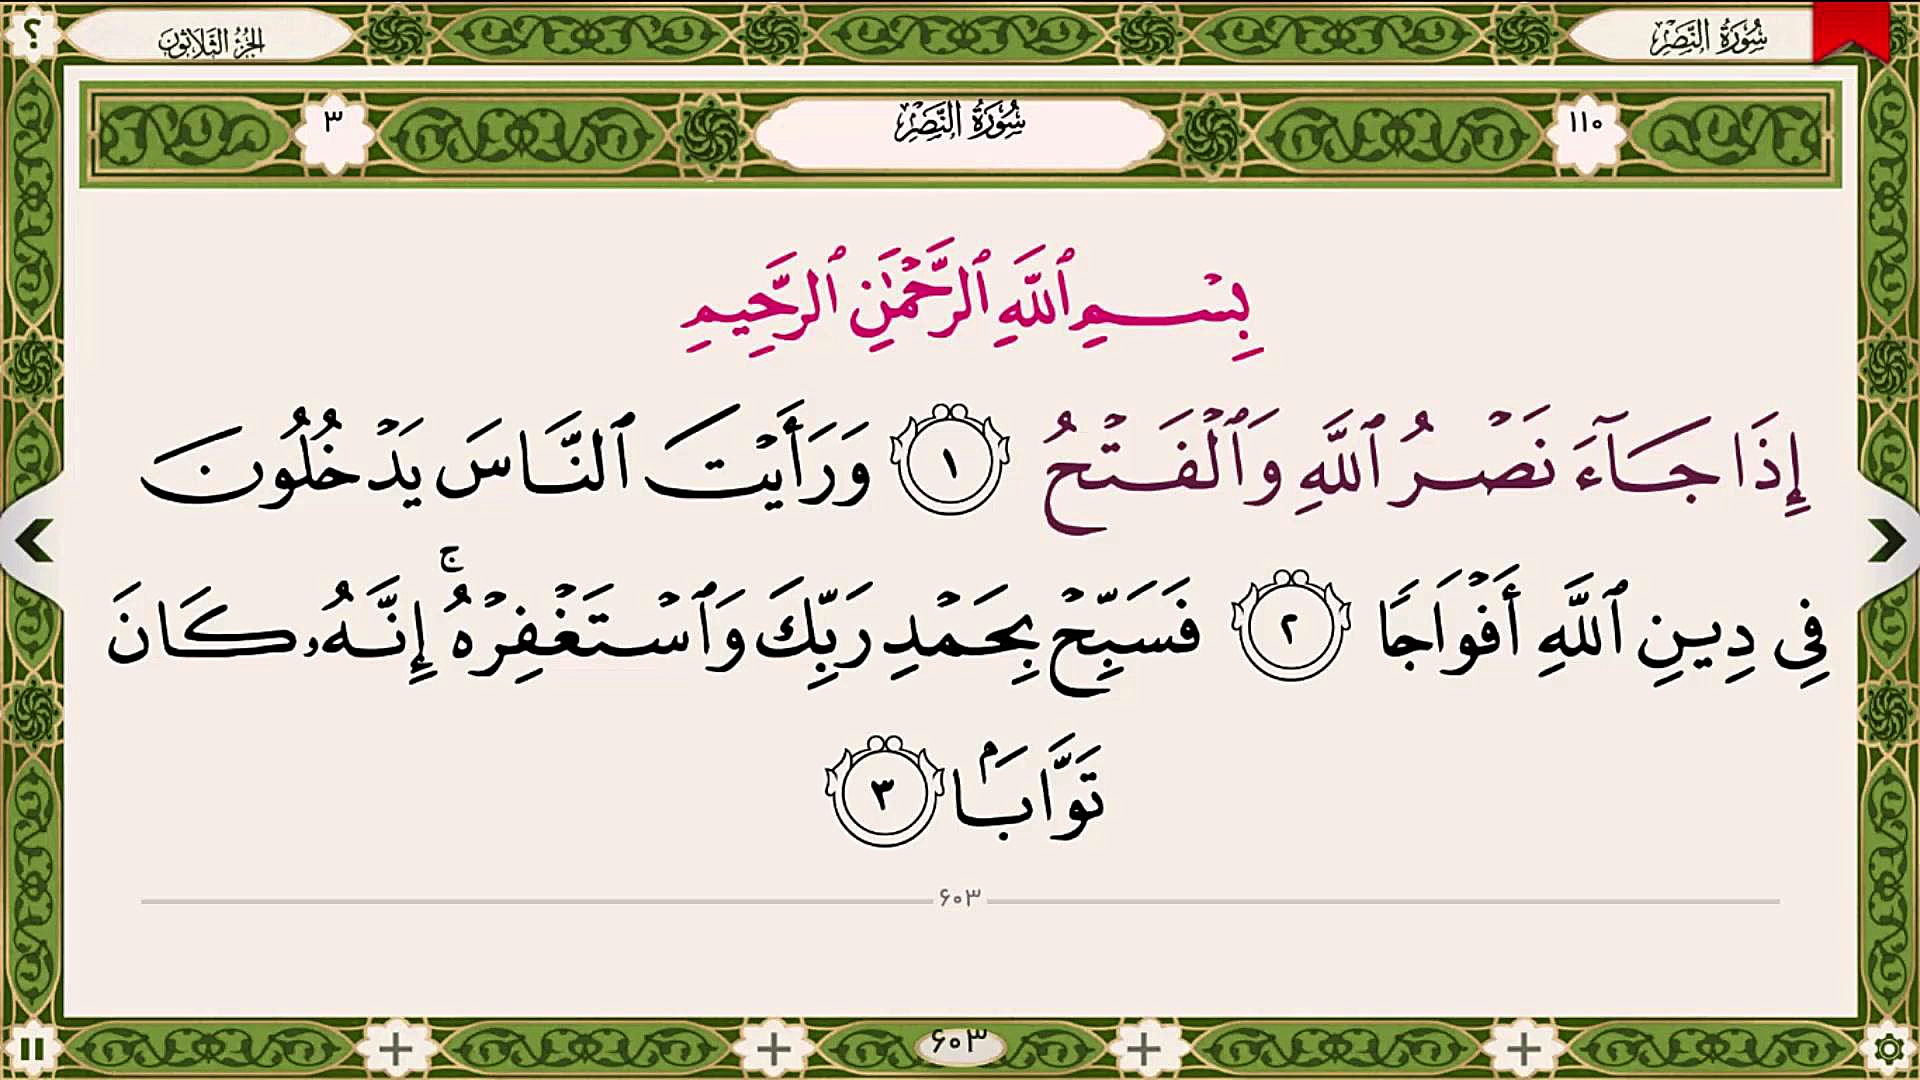 سُورَةُ النَّصْرِ
الجُزْءُ الثَّلَاثُونَ
؟
١١٠
سُورَةُ النَّصْرِ
٣
بِسْمِ ٱللَّهِ ٱلرَّحْمَٰنِ ٱلرَّحِيمِ
إِذَا جَآءَ نَصْرُ ٱللَّهِ وَٱلْفَتْحُ ١ وَرَأَيْتَ ٱلنَّاسَ يَدْخُلُونَ
فِي دِينِ ٱللَّهِ أَفْوَاجًا ٢ فَسَبِّحْ بِحَمْدِ رَبِّكَ وَٱسْتَغْفِرْهُ ۚ إِنَّهُۥ كَانَ
تَوَّابَۢا ٣
۶۰۳
۶۰۳